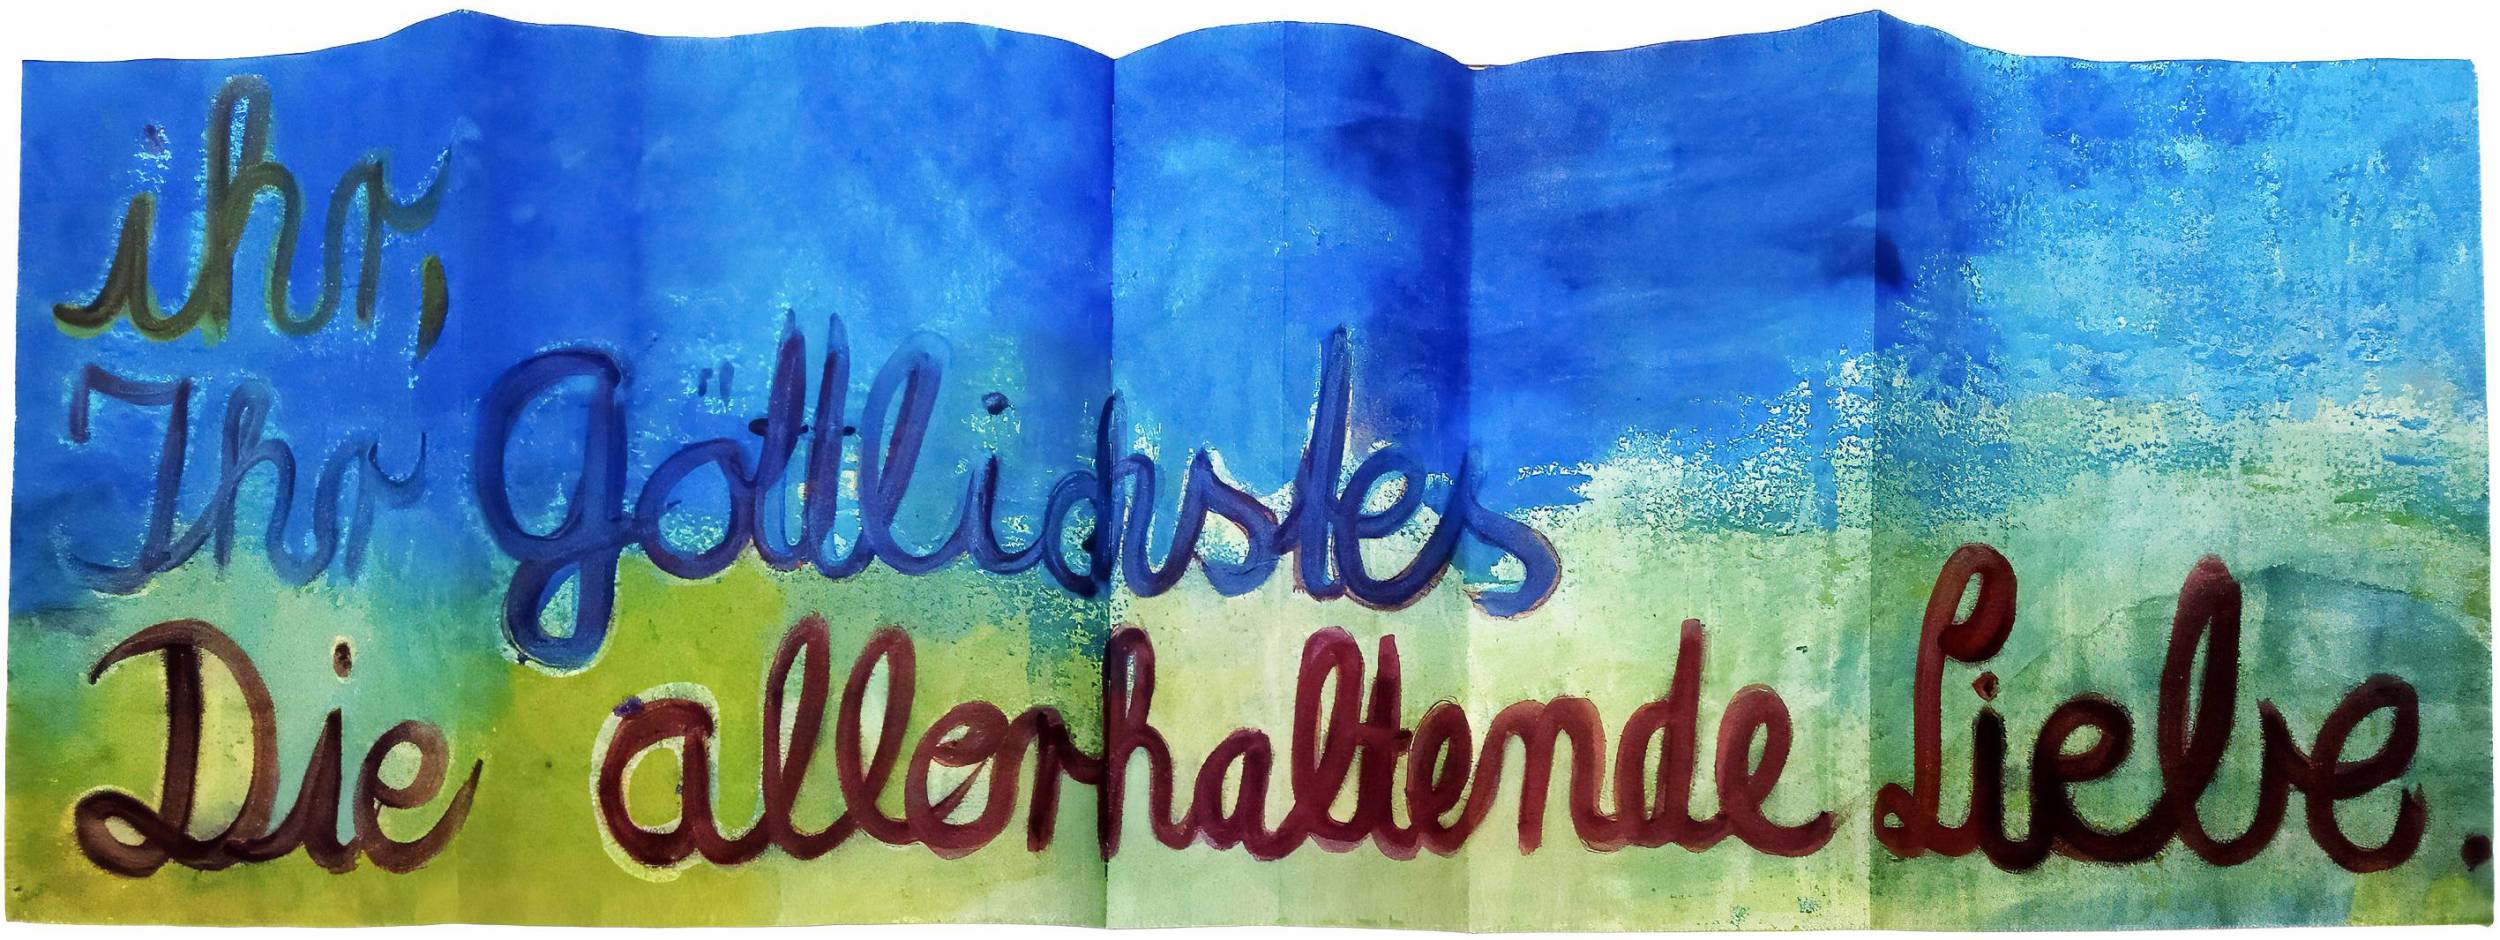 ihr,
Ihr göttlichstes
Die allerhaltende Liebe.